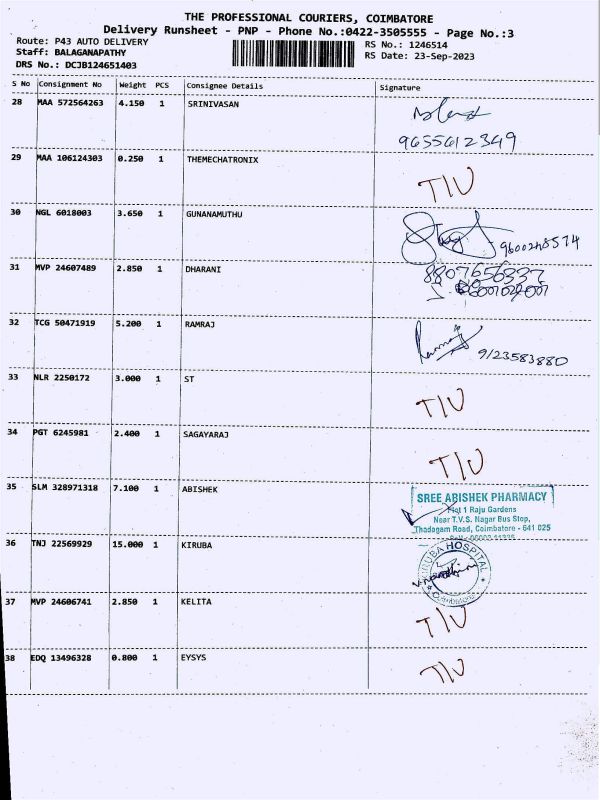 THE PROFESSIONAL COURIERS, COIMBATORE
Delivery Runsheet - PNP - Phone No.:0422-3505555 - Page No.:3
Route: P43 AUTO DELIVERY
RS No.: 1246514
Staff: BALAGANAPATHY
RS Date: 23-Sep-2023
DRS No.: DCJB124651403
S No Consignment No Weight PCS Consignee Details Signature
28 MAA 572564263 4.150 1 SRINIVASAN
9655612349
29 MAA 106124303 0.250 1 THEMECHATRONIX T/U
30 NGL 6018003 3.650 1 GUNANAMUTHU
31 MVP 24607489 2.850 1 DHARANI
8807656337
32 TCG 50471919 5.200 1 RAMRAJ
9123583880
33 NLR 2250172 3.000 1 ST T/U
34 PGT 6245981 2.400 1 SAGAYARAJ T/U
35 SLM 328971318 7.100 1 ABISHEK
SREE ABISHEK PHARMACY
Plot 1 Raju Gardens
Near T.V.S. Nagar Bus Stop,
Thadagam Road, Coimbatore - 641 025
36 TNJ 22569929 15.000 1 KIRUBA
KIRUBA HOSPITAL
Coimbatore
37 MVP 24606741 2.850 1 KELITA T/U
38 EDQ 13496328 0.800 1 EYSYS T/U